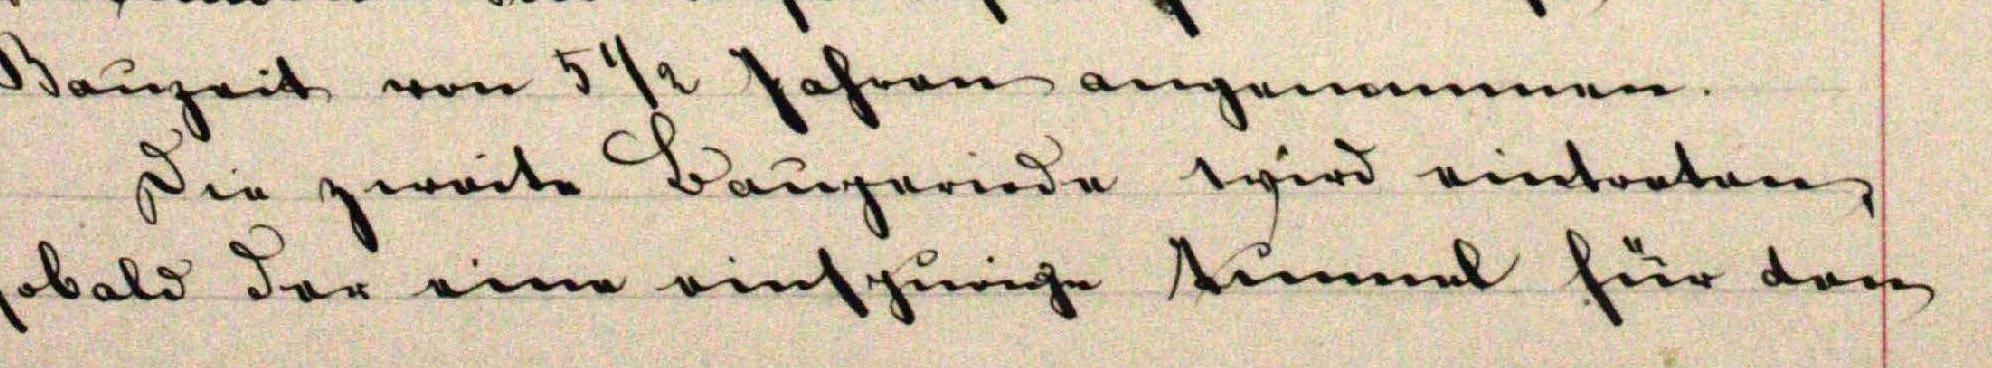 Bauzeit von 5 1/2 Jahren angenommen.
Die zweite Bauperiode wird eintreten,
sobald der eine einspurige Tunnel für den